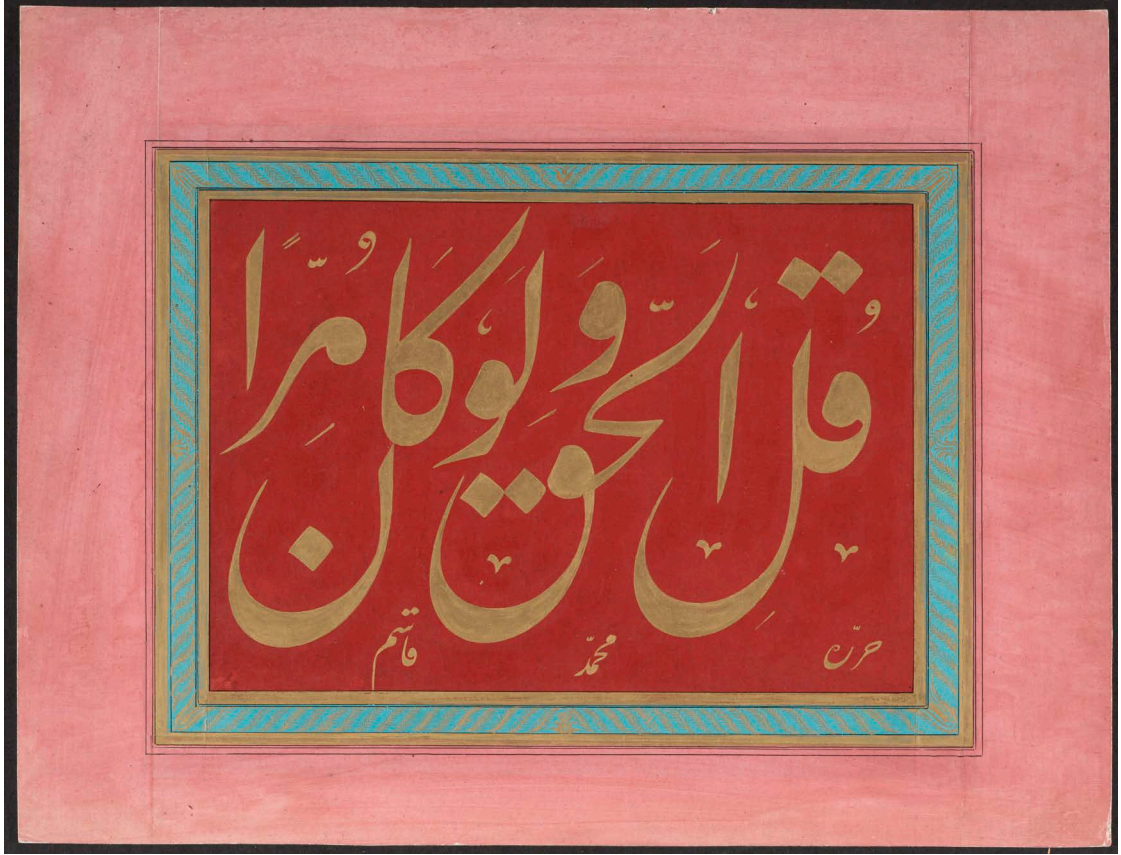 قُلِ الْحَقَّ وَلَوْ كَانَ مُرًّا
حرّره محمّد قاسم